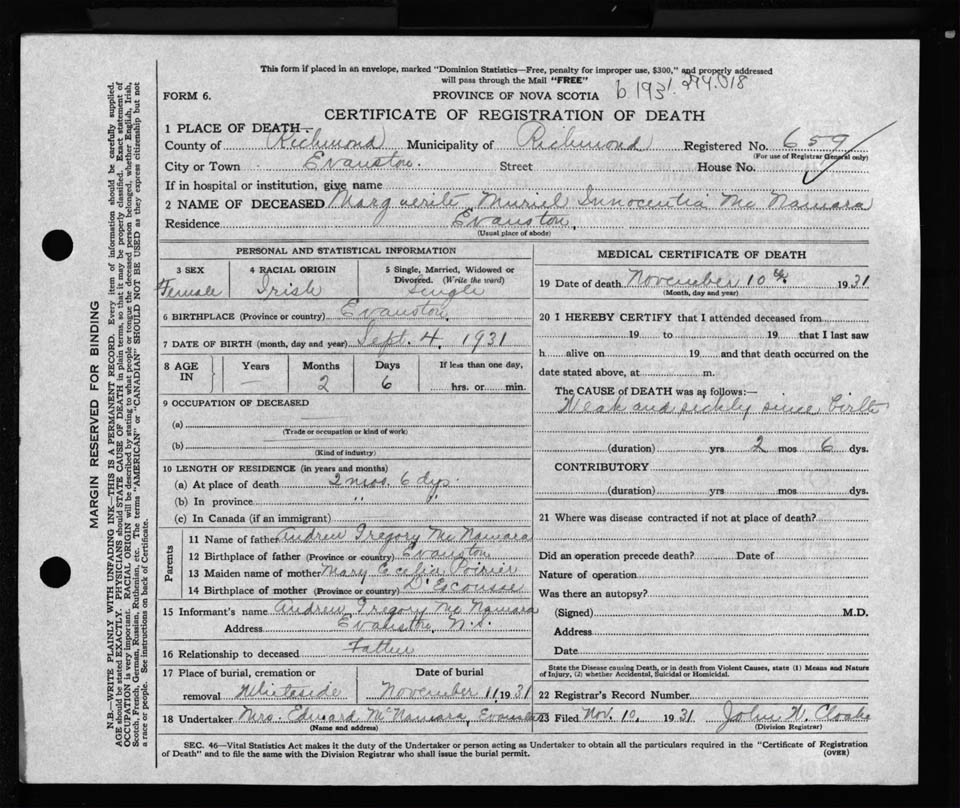 This form if placed in an envelope, marked "Dominion Statistics—Free, penalty for improper use, $300," and properly addressed
will pass through the Mail "FREE"
FORM 6. PROVINCE OF NOVA SCOTIA b.1931.
CERTIFICATE OF REGISTRATION OF DEATH
1 PLACE OF DEATH—
County of Richmond Municipality of Richmond Registered No. 659
(For use of Registrar General only)
City or Town Evanston. Street House No.
If in hospital or institution, give name
2 NAME OF DECEASED Marguerite Muriel Innocentia Mc Namara
Residence Evanston,
(Usual place of abode)
PERSONAL AND STATISTICAL INFORMATION
3 SEX 4 RACIAL ORIGIN 5 Single, Married, Widowed or
Divorced. (Write the word)
Female Irish Single
6 BIRTHPLACE (Province or country) Evanston,
7 DATE OF BIRTH (month, day and year) Sept. 4, 1931
8 AGE IN Years Months Days If less than one day,
— 2 6 hrs. or min.
9 OCCUPATION OF DECEASED
(a)
(Trade or occupation or kind of work)
(b)
(Kind of industry)
10 LENGTH OF RESIDENCE (in years and months)
(a) At place of death 2 mos. 6 dys.
(b) In province " "
(c) In Canada (if an immigrant)
Parents
11 Name of father Andrew Gregory Mc Namara
12 Birthplace of father (Province or country) Evanston
13 Maiden name of mother Mary Ecilia Poirier
14 Birthplace of mother (Province or country) D'Escousse
15 Informant's name Andrew Gregory Mc Namara
Address Evanston, N.S.
16 Relationship to deceased Father
17 Place of burial, cremation or Date of burial
removal November 11, 1931
18 Undertaker Mrs. Edward McNamara, Evanston
(Name and address)
MEDICAL CERTIFICATE OF DEATH
19 Date of death November 10th 1931
(Month, day and year)
20 I HEREBY CERTIFY that I attended deceased from
19 to 19 that I last saw
h alive on 19 and that death occurred on the
date stated above, at m.
The CAUSE of DEATH was as follows:—
Weak and sickly since birth
(duration) yrs 2 mos 6 dys.
CONTRIBUTORY
(duration) yrs mos dys.
21 Where was disease contracted if not at place of death?
Did an operation precede death? Date of
Nature of operation
Was there an autopsy?
(Signed) M.D.
Address
Date
State the Disease causing Death, or in death from Violent Causes, state (1) Means and Nature
of Injury, (2) whether Accidental, Suicidal or Homicidal.
22 Registrar's Record Number
23 Filed Nov. 10, 1931 John
(Division Registrar)
SEC. 46—Vital Statistics Act makes it the duty of the Undertaker or person acting as Undertaker to obtain all the particulars required in the "Certificate of Registration
of Death" and to file the same with the Division Registrar who shall issue the burial permit. (OVER)
MARGIN RESERVED FOR BINDING
N.B.—WRITE PLAINLY WITH UNFADING INK—THIS IS A PERMANENT RECORD. Every item of information should be carefully supplied.
AGE should be stated EXACTLY. PHYSICIANS should STATE CAUSE OF DEATH in plain terms, so that it may be properly classified. Exact statement of
OCCUPATION is very important. RACIAL ORIGIN will be described by stating to what people or tongue the deceased person belonged, whether English, Irish,
Scotch, French, German, Russian, Ruthenian, etc. The terms "AMERICAN" or "CANADIAN" SHOULD NOT BE USED as they express citizenship but not
a race or people. See instructions on back of Certificate.